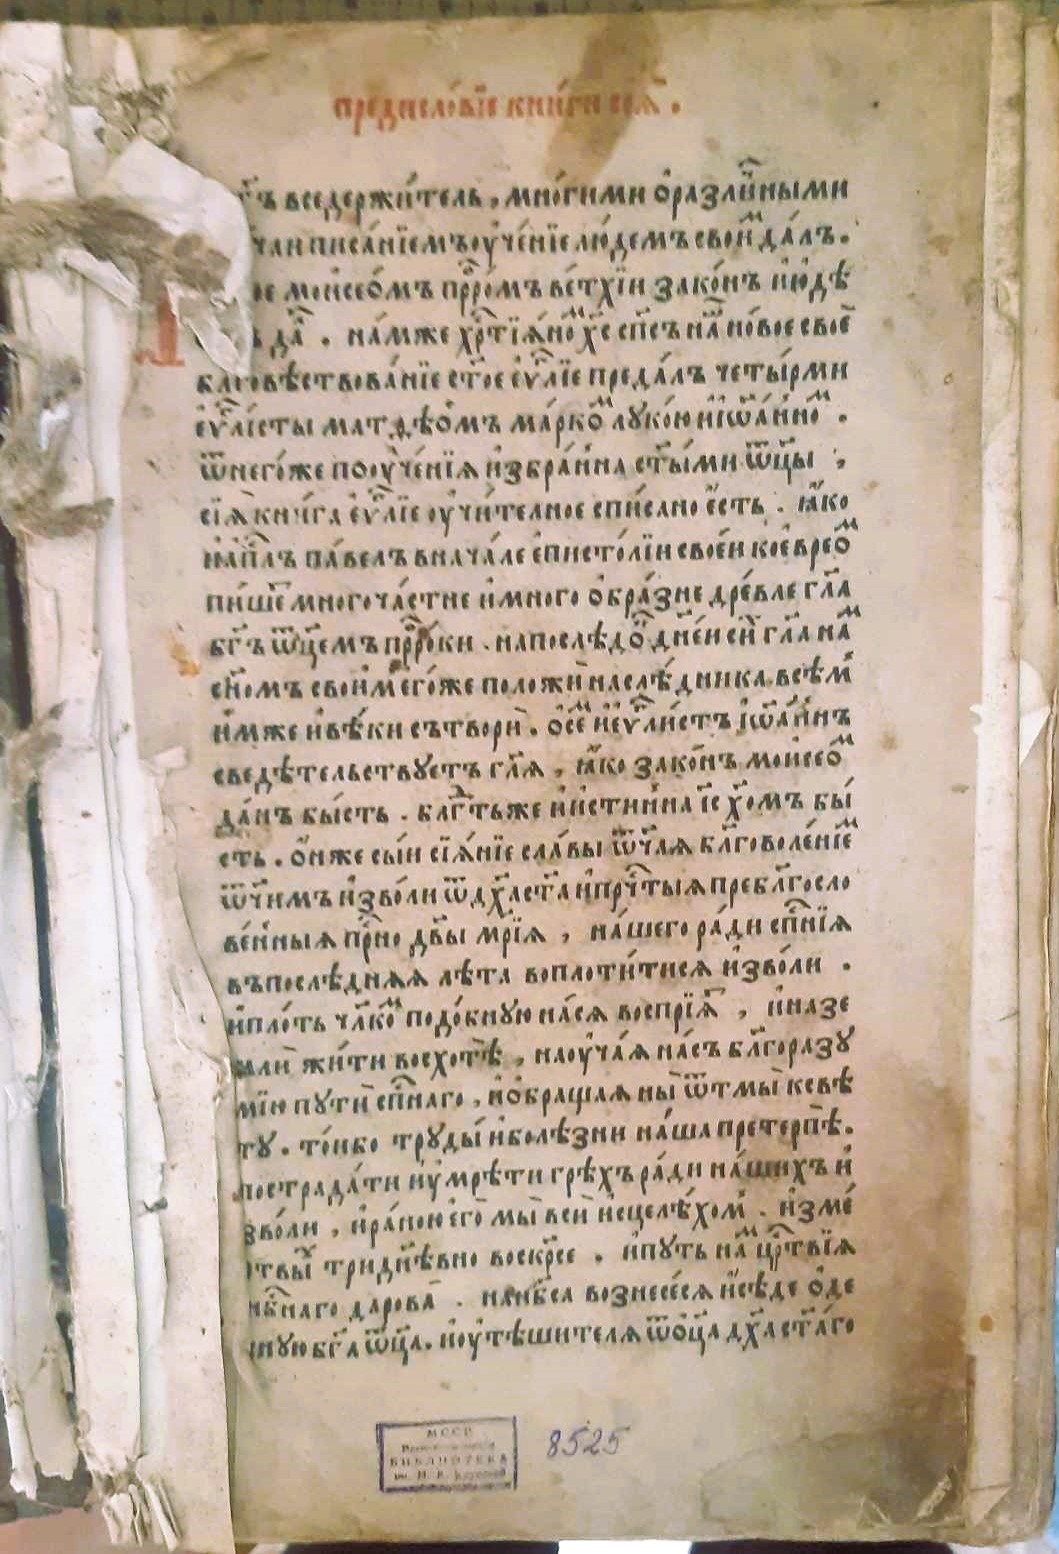 предисло́вїе кни́ги сеѧ̀ .
вседержи́тель , мно́гими ѻ҆разли́чными
писа́нїемъ оу҆че́нїе лю́демъ свои̑ⷨ да́лъ .
мои҆сео́мъ прⷪ҇ро́мъ ве́тхїи зако́нъ и҆ю҆дѣ
да̑ . на́мже хрⷭ҇тїѧ́номⷨ х҇е сп҃съ на́шⷲ но́вое свое̑
благовѣствова́нїе ст҃о́е е҆ѵⷢ҇лїе преда́лъ четы́рми
е҆ѵⷢ҇лісты матѳѣо́мъ ма́ркоⷨ луко́ю и҆і҆ѡа́нноⷨ .
ѿнего́же поуче́нїѧ и҆збра́ннаѧ ст҃ы́ми ѿц҃ы ,
сїѧ̀ кни́га е҆ѵⷢ҇лїе оу҆чи́телное спи́сано е҆́сть . ꙗ҆́ко
и҆а҆пⷭ҇лъ па́велъ внача́ле е҆писто́лїи свое́й кое҆врео́ⷨ
пи́шеⷮ многоча́стне и҆много ѻ҆бра́зне дре́вле гл҃а
бг҃ъ ѿц҃емъ прⷪ҇ро́ки . напослѣ́доⷦ҇ дне́й си́хⷯ гл҃а на́ⷨ
сн҃омъ свои́мⷨ е҆го́же положѝ наслѣ́дника всѣ́мⷨ
и҆́мже и҆вѣ́ки сътворѝ . ѻ҆се́мⷨ и҆е҆ѵⷢ҇ли́стъ і҆ѡа́ннъ
сведѣ́тельствуетъ гл҃ѧ , ꙗ҆́ко зако́нъ мои҆сео́ⷨ
да́нъ бы́сть . блгⷣть же и҆и҆́стинна і҆с҃ х҃омъ бы́
сть . ѻ҆́нже сы́и сїѧ́нїе сла́вы ѿч҃аѧ бл҃говоле́нїеⷨ
ѿч҃имъ и҆зво́ли ѿдх҃а ст҃а и҆прч҇тыѧ пребл҃госло
ве́нныѧ прⷭ҇но дв҃ы мр҃їѧ , на́шего ра́ди сп҃нїѧ
въпослѣ́днѧѧ лѣ́та воплоти́тисѧ и҆зво́ли .
и҆пло́ть чл҃коⷨ подо́бную на́сѧ воспрїѧ́тⷮ , и҆назе
млѝ жи́ти восхотѣ̀ , наоу҆ча́ѧ на́съ бл҃горазу́
мїю путѝ сп҃наго , и҆ѻ҆браща́ѧ ны̀ ѿтмы̀ ксвѣ́
ту . то́ико труды̀ и҆болѣ́зни на́ша претерпѣ̀ .
пострада́ти и҆у҆мре́ти грѣ́хъ ра́ди на́шихъ и҆
зво́ли , и҆ра́ною е҆го̀ мы̀ всѝ и҆сцелѣ́хомⷨ . и҆зме́
ртвыⷯ тридне́вно воскр҃се . и҆путь на́ⷨ црⷭ҇твїѧ
нбⷭ҇наго дарова̀ . нанб҃са вознесе́сѧ и҆сѣ́де ѻ҆де
сную бг҃а ѿц҃а . и҆оу҆тѣ́шителѧ ѿѻц҃а дх҃а ст҃а́го
МССР
БИБЛИОТЕКА
им. Н. К. Крупской
8525